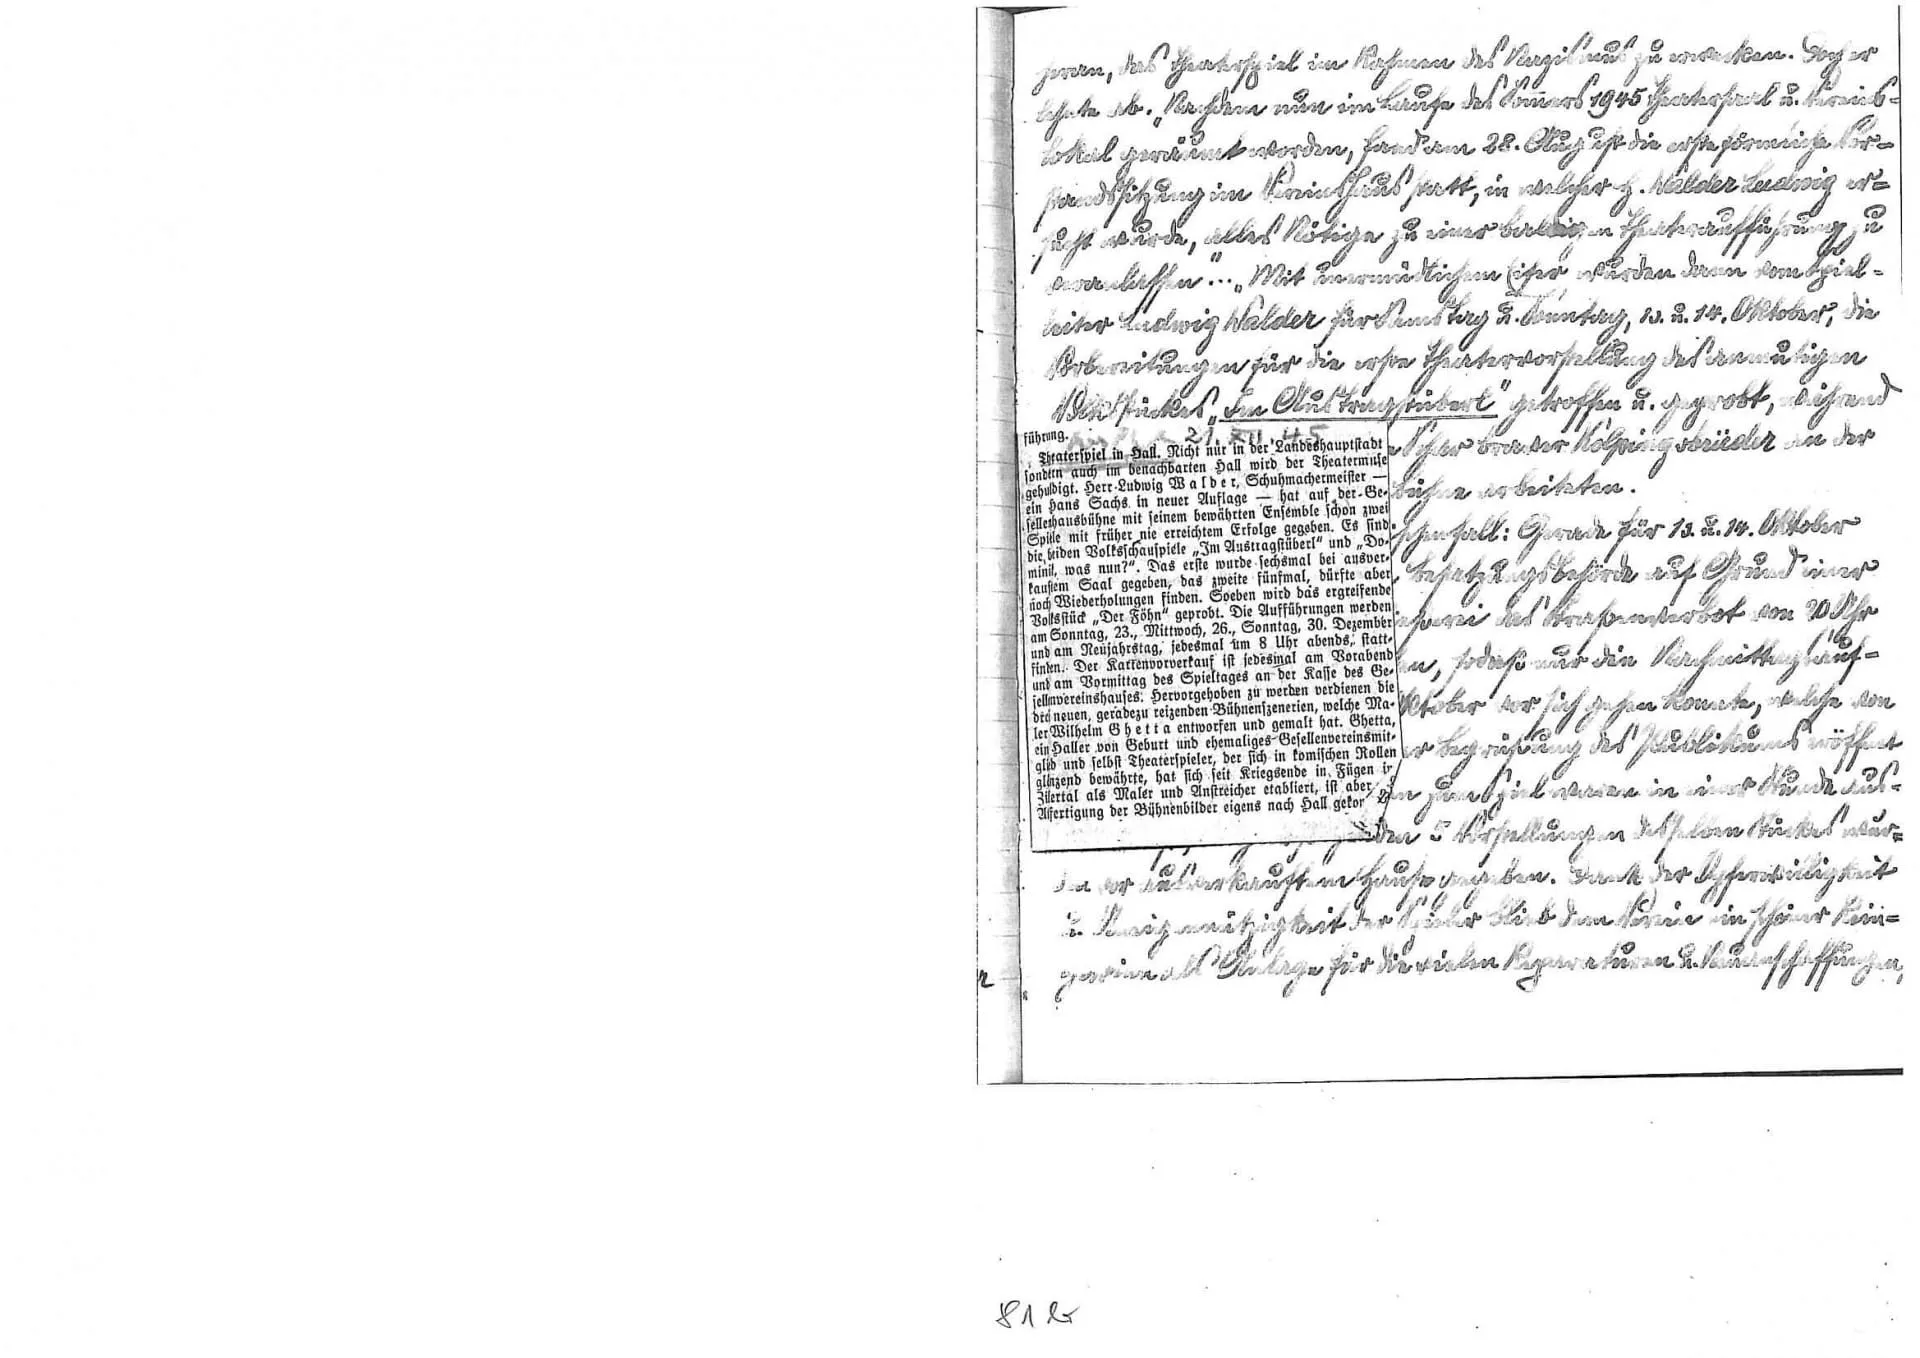 heran, das Theaterspiel im Rahmen des Nazismus zu erwecken. Doch er
lehnte ab. „Nachdem nun im Laufe des Sommers 1945 Theatersaal u. Vereins-
lokal geräumt worden, fand am 28. August die erste förmliche Vor-
standssitzung im Vereinshaus statt, in welcher H. Walder Ludwig er-
sucht wurde, alles Nötige zu einer baldigen Theateraufführung zu
veranlassen"... „Mit unermüdlichem Eifer wurden dann vom Spiel-
leiter Ludwig Walder für Samstag u. Sonntag, 13. u. 14. Oktober, die
Vorbereitungen für die erste Theatervorstellung des anmutigen
Volksstückes „Im Austragstüberl" getroffen u. geprobt, während
Schar braver Kolpingsbrüder an der
Bühne arbeiteten.
Gerade für 13. u. 14. Oktober
Besatzungsbehörde auf Grund einer
das Strassenverbot von 20 Uhr
sodaß nur die Nachmittagsauf-
Oktober vor sich gehen konnte, welche von
Begrüßung des Publikums eröffnet
zum Spiel waren in einer Stunde aus-
5 Vorstellungen desselben Stückes wur-
den vor ausverkauftem Hause gegeben. Dank der Opferwilligkeit
u. Uneigennützigkeit der Spieler blieb dem Verein ein schöner Rein-
gewinn als Anlage für die vielen Reparaturen u. Neuanschaffungen,
führung.
21. XII. 45
Theaterspiel in Hall. Nicht nur in der Landeshauptstadt
sondern auch im benachbarten Hall wird der Theatermuse
gehuldigt. Herr Ludwig Walder, Schuhmachermeister —
ein Hans Sachs in neuer Auflage — hat auf der Ge-
sellenhausbühne mit seinem bewährten Ensemble schon zwei
Spiele mit früher nie erreichtem Erfolge gegeben. Es sind
die beiden Volksschauspiele „Im Austragstüberl" und „Do-
minik, was nun?". Das erste wurde sechsmal bei ausver-
kauftem Saal gegeben, das zweite fünfmal, dürfte aber
noch Wiederholungen finden. Soeben wird das ergreifende
Volksstück „Der Föhn" geprobt. Die Aufführungen werden
am Sonntag, 23., Mittwoch, 26., Sonntag, 30. Dezember
und am Neujahrstag, jedesmal um 8 Uhr abends, statt-
finden. Der Kartenvorverkauf ist jedesmal am Vorabend
und am Vormittag des Spieltages an der Kasse des Ge-
sellenvereinshauses. Hervorgehoben zu werden verdienen die
drei neuen, geradezu reizenden Bühnenszenerien, welche Ma-
ler Wilhelm Ghetta entworfen und gemalt hat. Ghetta,
ein Haller von Geburt und ehemaliges Gesellenvereinsmit-
glied und selbst Theaterspieler, der sich in komischen Rollen
glänzend bewährte, hat sich seit Kriegsende in Fügen i.
Zillertal als Maler und Anstreicher etabliert, ist aber
Anfertigung der Bühnenbilder eigens nach Hall gekom